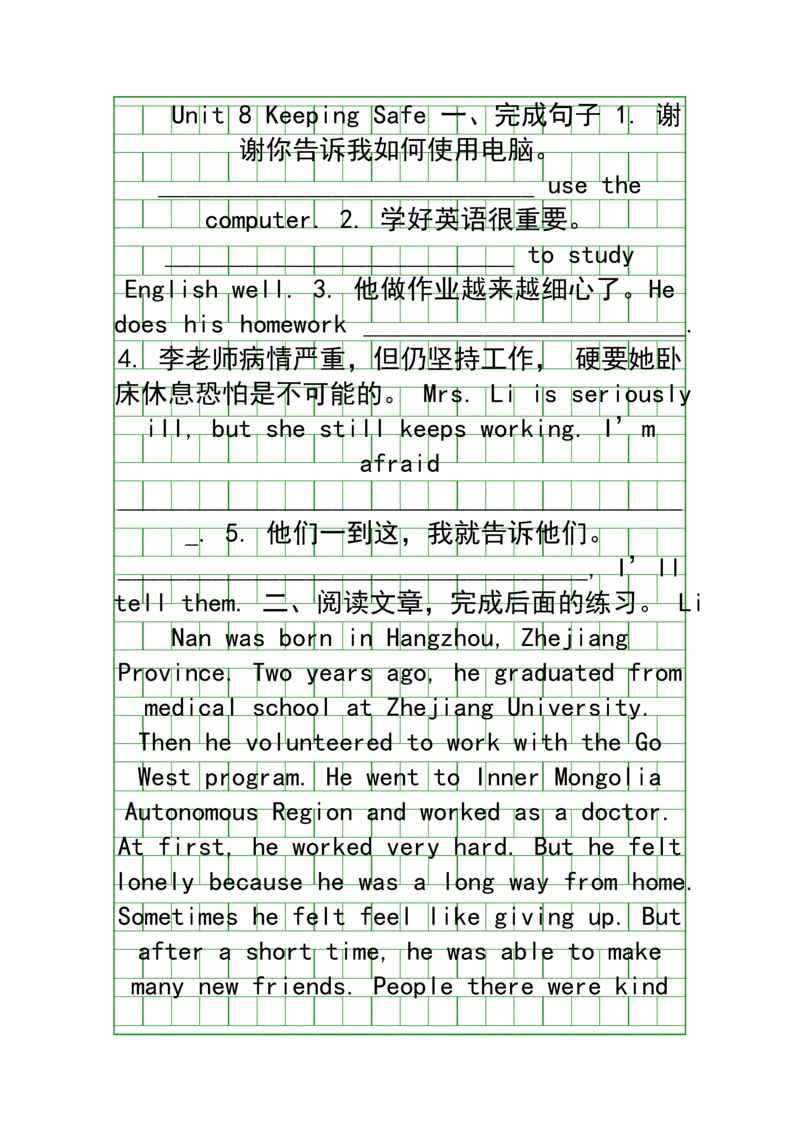 Unit 8 Keeping Safe 一、完成句子 1. 谢
谢你告诉我如何使用电脑。
____________________________ use the
computer. 2. 学好英语很重要。
__________________________ to study
English well. 3. 他做作业越来越细心了。He
does his homework ________________________.
4. 李老师病情严重，但仍坚持工作， 硬要她卧
床休息恐怕是不可能的。 Mrs. Li is seriously
ill, but she still keeps working. I’m
afraid
__________________________________________
_. 5. 他们一到这，我就告诉他们。
___________________________________, I’ll
tell them. 二、阅读文章，完成后面的练习。 Li
Nan was born in Hangzhou, Zhejiang
Province. Two years ago, he graduated from
medical school at Zhejiang University.
Then he volunteered to work with the Go
West program. He went to Inner Mongolia
Autonomous Region and worked as a doctor.
At first, he worked very hard. But he felt
lonely because he was a long way from home.
Sometimes he felt feel like giving up. But
after a short time, he was able to make
many new friends. People there were kind